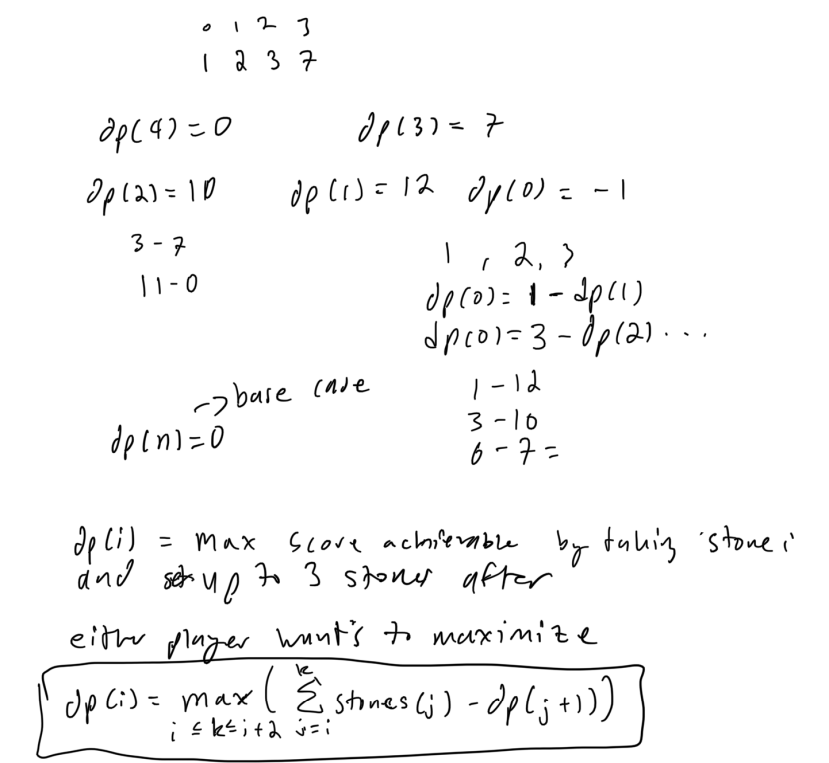 0 1 2 3
1 2 3 7
dp(4) = 0 dp(3) = 7
dp(2) = 10 dp(1) = 12 dp(0) = -1
3 - 7
11 - 0
1, 2, 3
dp(0) = 1 - dp(1)
dp(0) = 3 - dp(2) ...
1 - 12
3 - 10
6 - 7 =
-> base case
dp(n) = 0
dp(i) = max score achievable by taking stone i
and up to 3 stones after
either player want's to maximize
dp(i) = max_{i ≤ k ≤ i+2} ( Σ_{j=i}^{k} stones(j) - dp(j+1) )